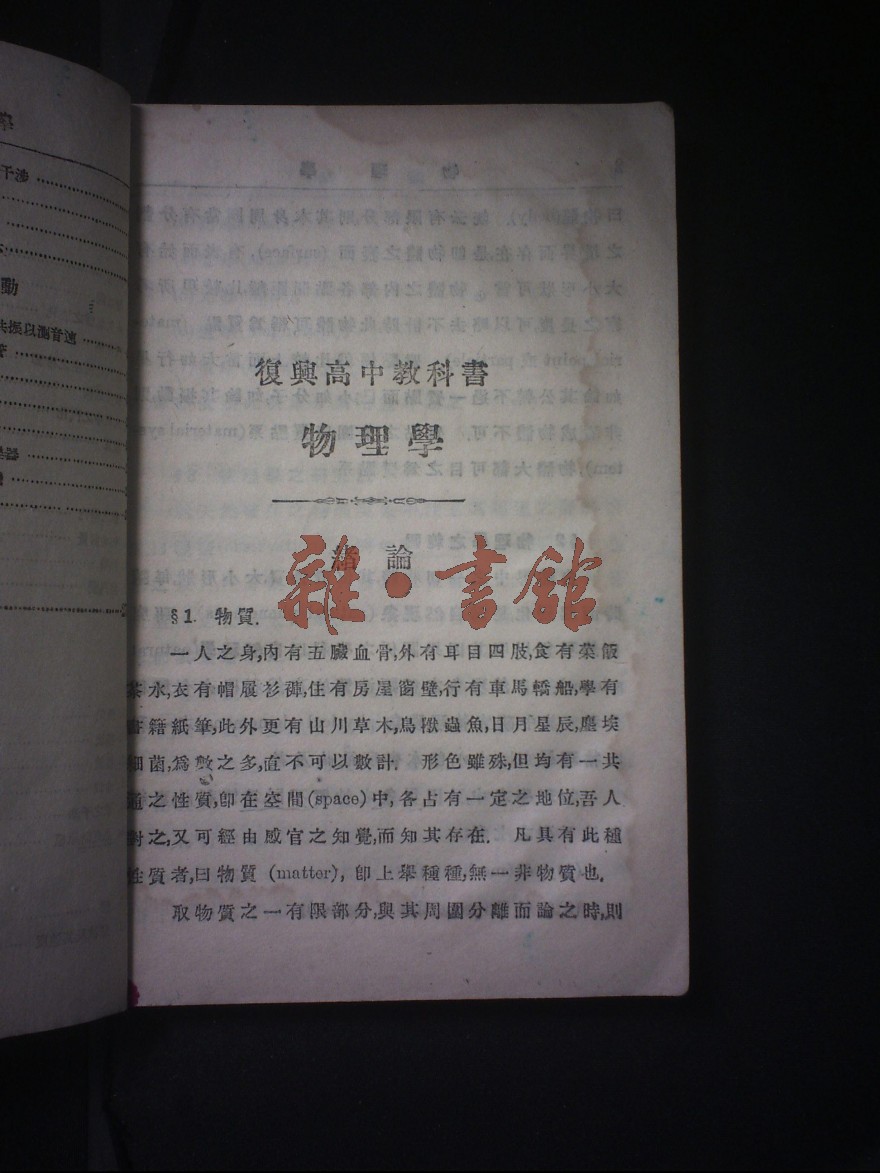 學
干涉
動
共振以測音速
復興高中教科書
物理學
緒論
雜·書館
§1. 物質.
一人之身,內有五臟血骨,外有耳目四肢,食有菜飯
茶水,衣有帽履衫褲,住有房屋窗壁,行有車馬轎船,學有
書籍紙筆,此外更有山川草木,鳥獸蟲魚,日月星辰,塵埃
細菌,爲數之多,直不可以數計. 形色雖殊,但均有一共
通之性質,卽在空間(space)中,各占有一定之地位,吾人
對之,又可經由感官之知覺,而知其存在. 凡具有此種
性質者,曰物質 (matter), 卽上舉種種,無一非物質也.
取物質之一有限部分,與其周圍分離而論之時,則